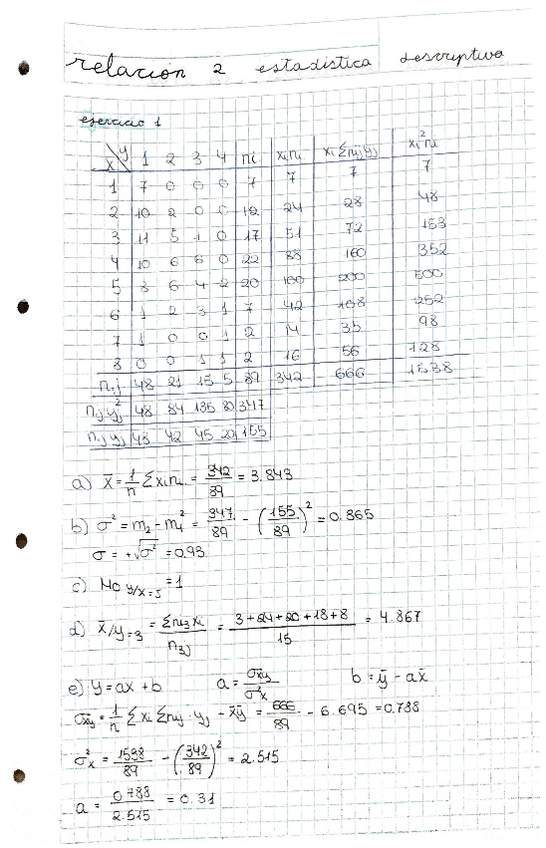 relación 2 estadística descriptiva
ejercicio 1
x\y 1 2 3 4 ni xini xi∑nijyj xi²ni
1 7 0 0 0 7 7 7 7
2 10 2 0 0 12 24 28 48
3 11 5 1 0 17 51 72 153
4 10 6 6 0 22 88 160 352
5 8 6 4 2 20 100 200 500
6 1 2 3 1 7 42 108 252
7 1 0 0 1 2 14 35 98
8 0 0 1 1 2 16 56 128
n.j 48 21 15 5 89 342 666 1538
n.jyj² 48 84 135 80 347
n.jyj 48 42 45 20 155
a) x̄ = 1/n ∑xini. = 342/89 = 3.843
b) σ² = m₂ - m₁² = 347/89 - (155/89)² = 0.865
σ = +√σ² = 0.93
c) Mo y/x=5 = 1
d) x̄/y=3 = ∑ni3xi/n3j = 3+24+20+18+8/15 = 4.867
e) y = ax + b a = σxy/σ²x b = ȳ - ax̄
σxy = 1/n ∑xi∑nij yj - x̄ȳ = 666/89 - 6.695 = 0.788
σ²x = 1538/89 - (342/89)² = 2.515
a = 0.788/2.515 = 0.31